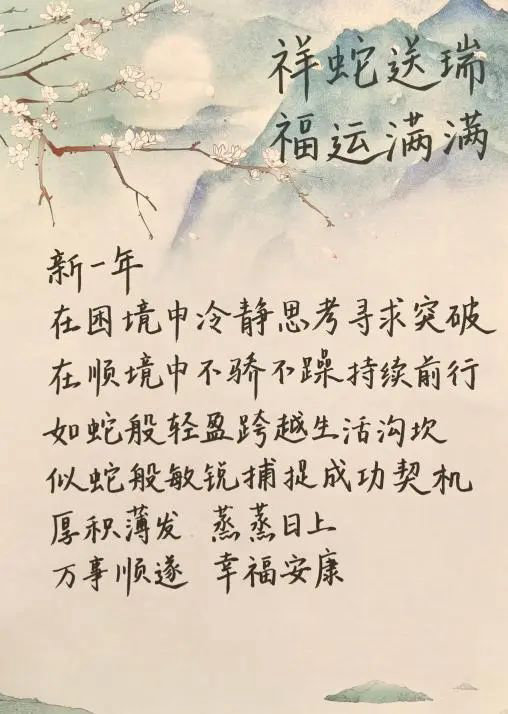 祥蛇送瑞
福运满满
新一年
在困境中冷静思考寻求突破
在顺境中不骄不躁持续前行
如蛇般轻盈跨越生活沟坎
似蛇般敏锐捕捉成功契机
厚积薄发 蒸蒸日上
万事顺遂 幸福安康